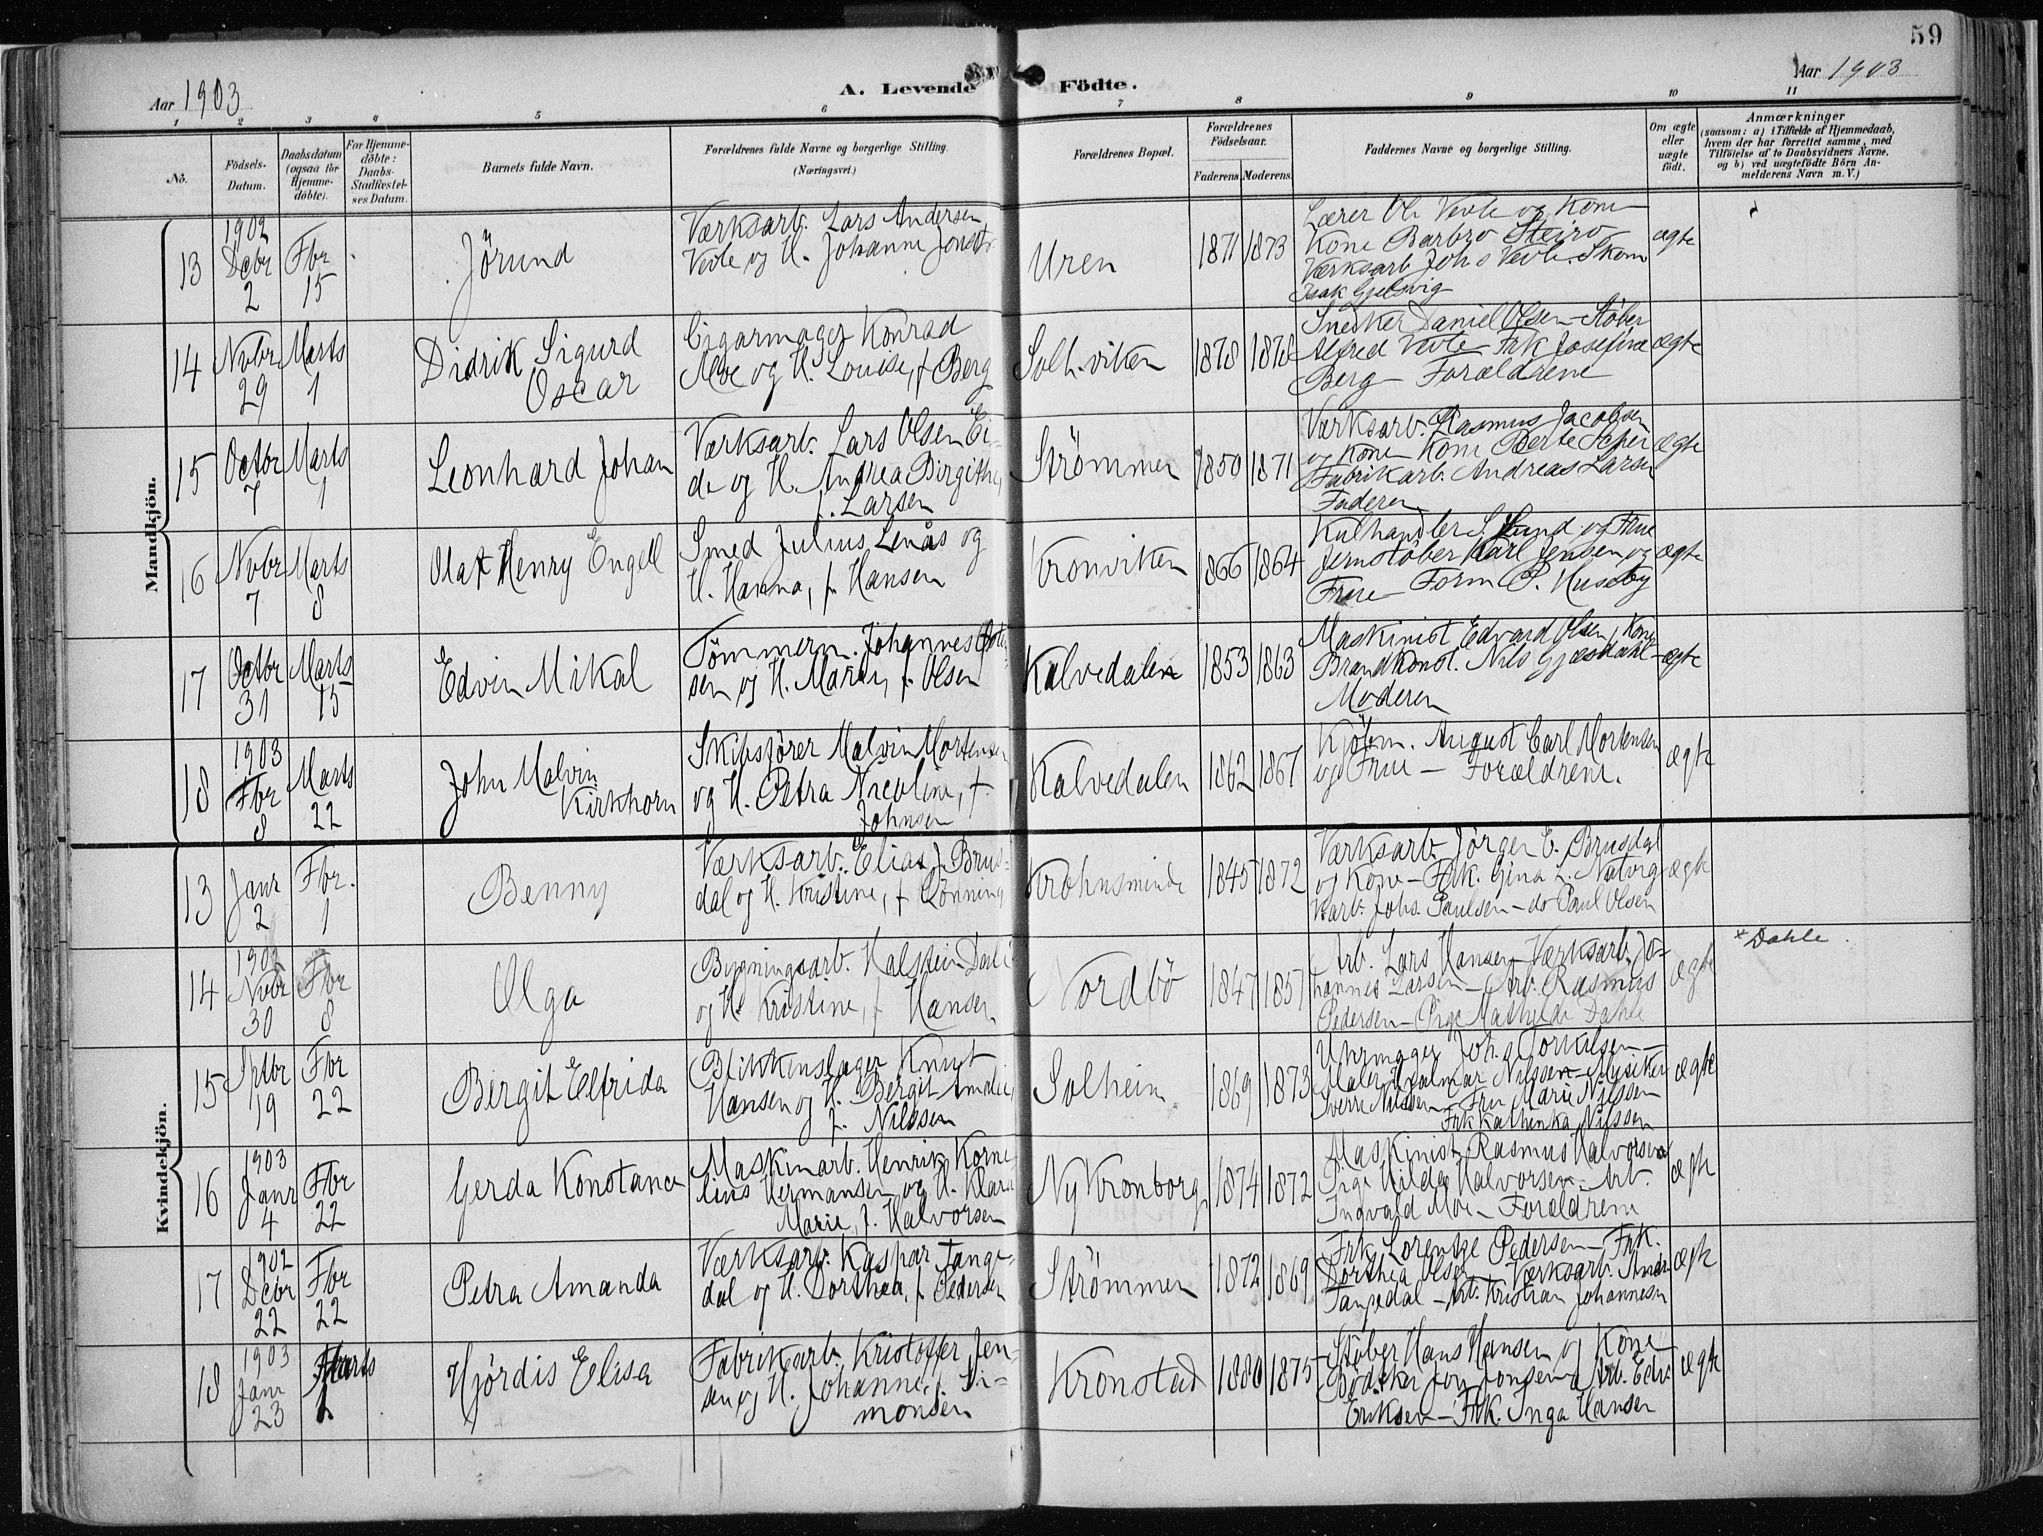 59
Aar 1903
A. Levende Födte.
Aar 1903
1 2 3 4 5 6 7 8 9 10 11
No.
Födsels-Datum.
Daabsdatum (ogsaa for Hjemme-döbte).
For Hjemme-döbte: Daabs-Stadfæstel-ses Datum.
Barnets fulde Navn.
Forældrenes fulde Navne og borgerlige Stilling.
(Næringsvei.)
Forældrenes Bopæl.
Forældrenes Födselsaar.
Faderens. Moderens.
Faddernes Navne og borgerlige Stilling.
Om ægte eller uægte födt.
Anmærkninger
(saasom: a) i Tilfælde af Hjemmedaab,
hvem der har forrettet samme, med
Tilföielse af to Daabsvidners Navne,
og b) ved uægtefödte Börn An-
melderens Navn m. V.)
Mandkjön.
13 1902 Decbr 2 Fbr 15 Jörund
Værksarb. Lars Andersen
Vevle og H. Johanne
Uren 1871 1873
Lærer Ol. Vevle og Kone
Kone Barbro Steiro
Værksarb. Joh s Vevle. Skom
Isak Gjelsvig
ægte
14 Novbr 29 Marts 1 Didrik Sigurd
Oscar
Cigarmager Konrad
Moe og H. Louise, f. Berg
Solh.viken 1878 1878
Snedker Daniel Olsen - Støber
Alfred Vevle Frk Josefine
Berg - Forældrene
ægte
15 Octbr 7 Marts 1 Leonhard Johan
Værksarb. Lars Olsen Ei-
de og H. Andrea Birgithe,
f. Larsen
Strømmen 1850 1871
Værksarb. Rasmus Jacobsen
og Kone Kone Berte
Fabrikarb. Andreas Larsen
Faderen
ægte
16 Novbr 7 Marts 8 Olaf Henry Engell
Smed Julius Lenås og
H. Hanna, f. Hansen
Kronviken 1866 1864
Kulhandler S. Lund og Frue
Jernstøber Karl Jensen og
Frue - Form P. Huseby
ægte
17 Octbr 31 Marts 15 Edvin Mikal
Tømmerm. Johannes
sen og H. Marie, f. Olsen
Kalvedalen 1853 1863
Maskinist Edvard Olsen, Kone
Brandkonst. Nils Gjæsdahl
Moderen
ægte
18 1903 Fbr 8 Marts 22 John Malvin
Kirkhorn
Skibsfører Malvin Mortensen
og H. Petra Nicoline, f.
Johnsen
Kalvedalen 1862 1867
Kjøbm. August Carl Mortensen
og Frue - Forældrene.
ægte
Kvindekjön.
13 Janr 2 Fbr. 1 Benny
Værksarb. Elias J. Brus-
dal og H. Kristine, f. Lønning
Krohnsminde 1845 1872
Værksarb. Jörgen E. Brusdal
og Kone - Frk. Gina L. Natvig
Varb. Johs. Paulsen - do Paul Olsen
ægte
14 1902 Novbr 30 Fbr 8 Olga
Bygningsarb. Halstein
og H. Kristine, f. Hansen
Nordbö 1847 1857
Arb. Lars Hansen - Værksarb. Jo-
hannes Larsen - Arb. Rasmus
Pedersen - Pige Mathilde Dahle
ægte
* Dahle
15 Sptbr 19 Fbr 22 Bergit Elfrida
Blikkenslager Knut
Hansen og H. Bergit Amalie,
f. Nilssen
Solheim 1869 1873
Uhrmager Joh. Torkilsen -
Maler Hjalmar Nilssen - Musiker
Sverre Nilssen - Fru Marie Nilssen
Frk Kathinka Nilssen
ægte
16 1903 Janr 4 Fbr 22 Gerda Konstance
Maskinarb. Henrik Korne-
lius Hermansen og H. Klara
Marie, f. Halvorsen
Ny Kronborg 1874 1872
Maskinist Rasmus Halvorsen
Pige Hilda Halvorsen - Arb.
Ingvald Moe - Forældrene
ægte
17 1902 Decbr 22 Fbr 22 Petra Amanda
Værksarb. Kaspar Tange-
dal og H. Dorthea, f. Pedersen
Strømmen 1872 1869
Frk. Lorentze Pedersen - Frk.
Dorthea Olsen - Værksarb.
Tangedal - Arb. Kristian Johannesen
ægte
18 1903 Janr 23 Marts 1 Hjördis Elisa
Fabrikarb. Kristoffer Jen-
sen og H. Johanne, f. Si-
monsen
Kronstad 1880 1875
Støber Hans Hansen og Kone
Bødker Jon Jonsen Arb. Edv.
Eriksen - Frk. Inga Hansen
ægte